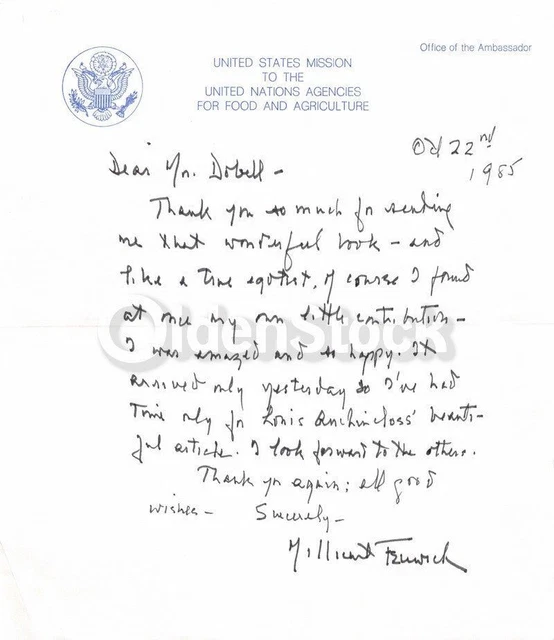 Office of the Ambassador
UNITED STATES MISSION
TO THE
UNITED NATIONS AGENCIES
FOR FOOD AND AGRICULTURE
Oct 22nd
1985
Dear Mr. Dobell –
Thank you so much for sending
me that wonderful book – and
like a true egotist, of course I found
at once my own little contribution –
I was amazed and so happy. It
arrived only yesterday so I've had
time only for Louis Auchincloss' beauti-
ful article. I look forward to the others.
Thank you again; all good
wishes – Sincerely –
Millicent Fenwick
OldenStock